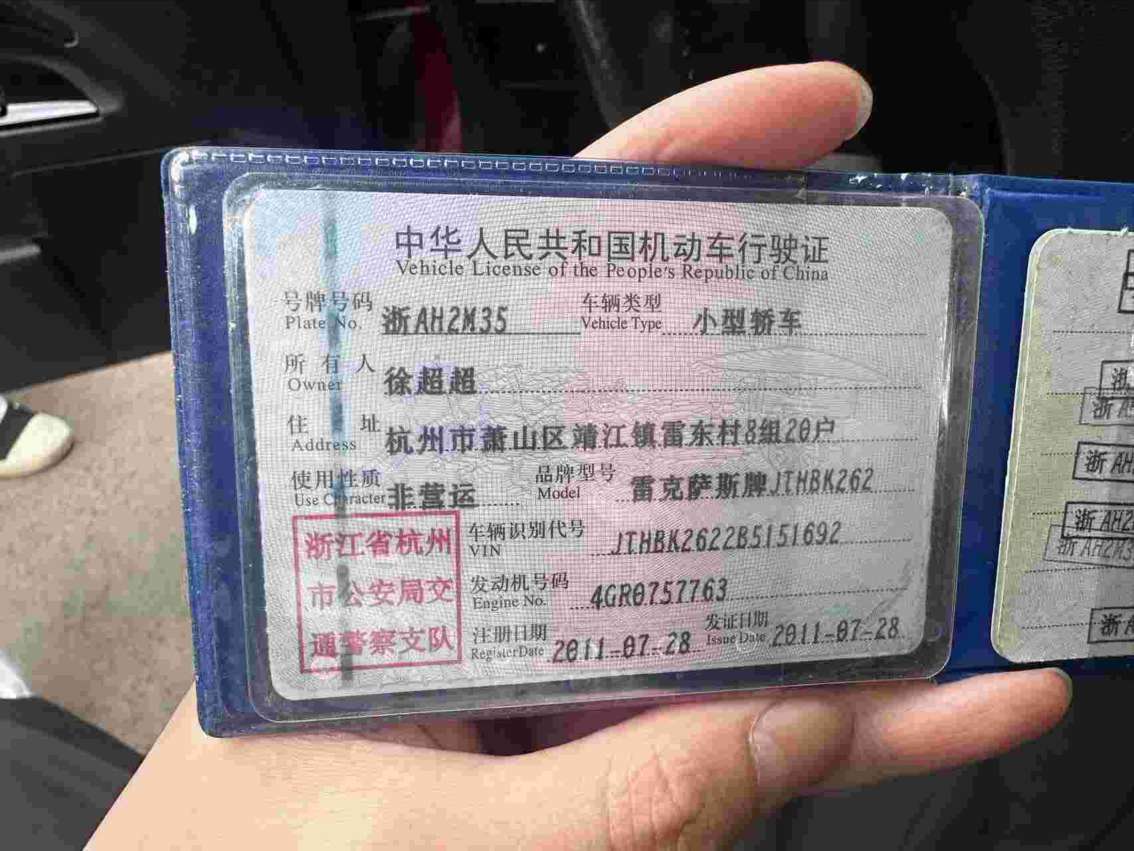 中华人民共和国机动车行驶证
Vehicle License of the People's Republic of China
号牌号码 浙AH2M35 车辆类型 小型轿车
Plate No. Vehicle Type
所有人 徐超超
Owner
住址 杭州市萧山区靖江镇雷东村8组20户
Address
使用性质 非营运 品牌型号 雷克萨斯牌JTHBK262
Use Character Model
浙江省杭州
市公安局交
通警察支队
车辆识别代号 JTHBK2622B5151692
VIN
发动机号码 4GR0757763
Engine No.
注册日期 2011-07-28 发证日期 2011-07-28
Register Date Issue Date
浙
浙A
浙AH
浙AH2
浙AH2M3
浙A